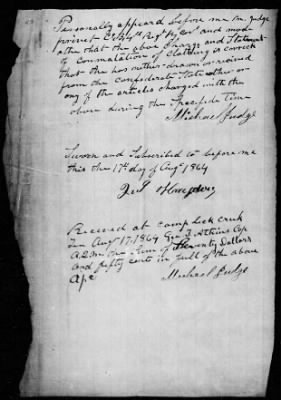 Personally appeared before me M. Judge
privet C 5th Regt and made
othe that the above charge and Statement
of commutation of Clothing is correct
that he has neither drawn or recived
from the Confederate States either or
any of the articles charged with the
above during the Specifide Time
Michael Judge
Sworn and Subscribed to before me
this the 17th day of Augt 1864
Received at Camp Lick Creek
Augt 17. 1864 Geo T. Atkins Cap
A.Q.M. the Sum of Seventy Dollars
and fifty cents in full of the above
Apc
Michael Judge